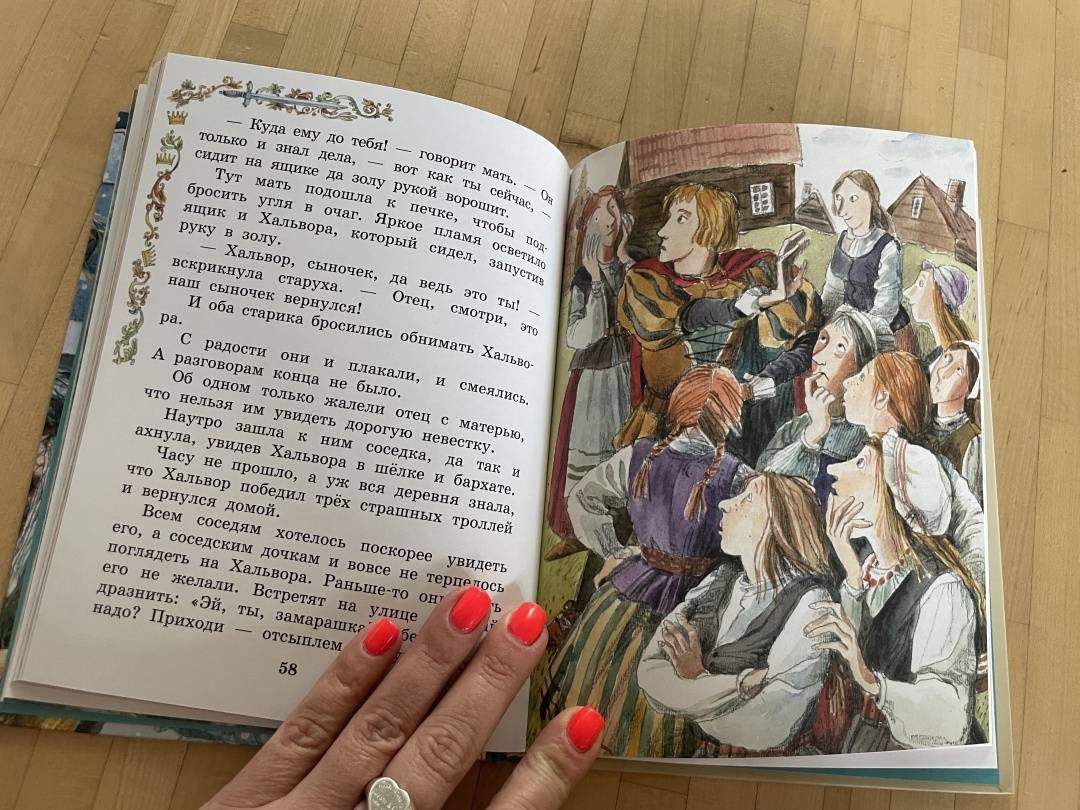 — Куда ему до тебя! — говорит мать. — Он
только и знал дела, — вот как ты сейчас, —
сидит на ящике да золу рукой ворошит.
Тут мать подошла к печке, чтобы под-
бросить угля в очаг. Яркое пламя осветило
ящик и Хальвора, который сидел, запустив
руку в золу.
— Хальвор, сыночек, да ведь это ты! —
вскрикнула старуха. — Отец, смотри, это
наш сыночек вернулся!
И оба старика бросились обнимать Хальво-
ра.
С радости они и плакали, и смеялись.
А разговорам конца не было.
Об одном только жалели отец с матерью,
что нельзя им увидеть дорогую невестку.
Наутро зашла к ним соседка, да так и
ахнула, увидев Хальвора в шёлке и бархате.
Часу не прошло, а уж вся деревня знала,
что Хальвор победил трёх страшных троллей
и вернулся домой.
Всем соседям хотелось поскорее увидеть
его, а соседским дочкам и вовсе не терпелось
поглядеть на Хальвора. Раньше-то они
его не желали. Встретят на улице
дразнить: «Эй, ты, замарашка!
надо? Приходи — отсыплем
58